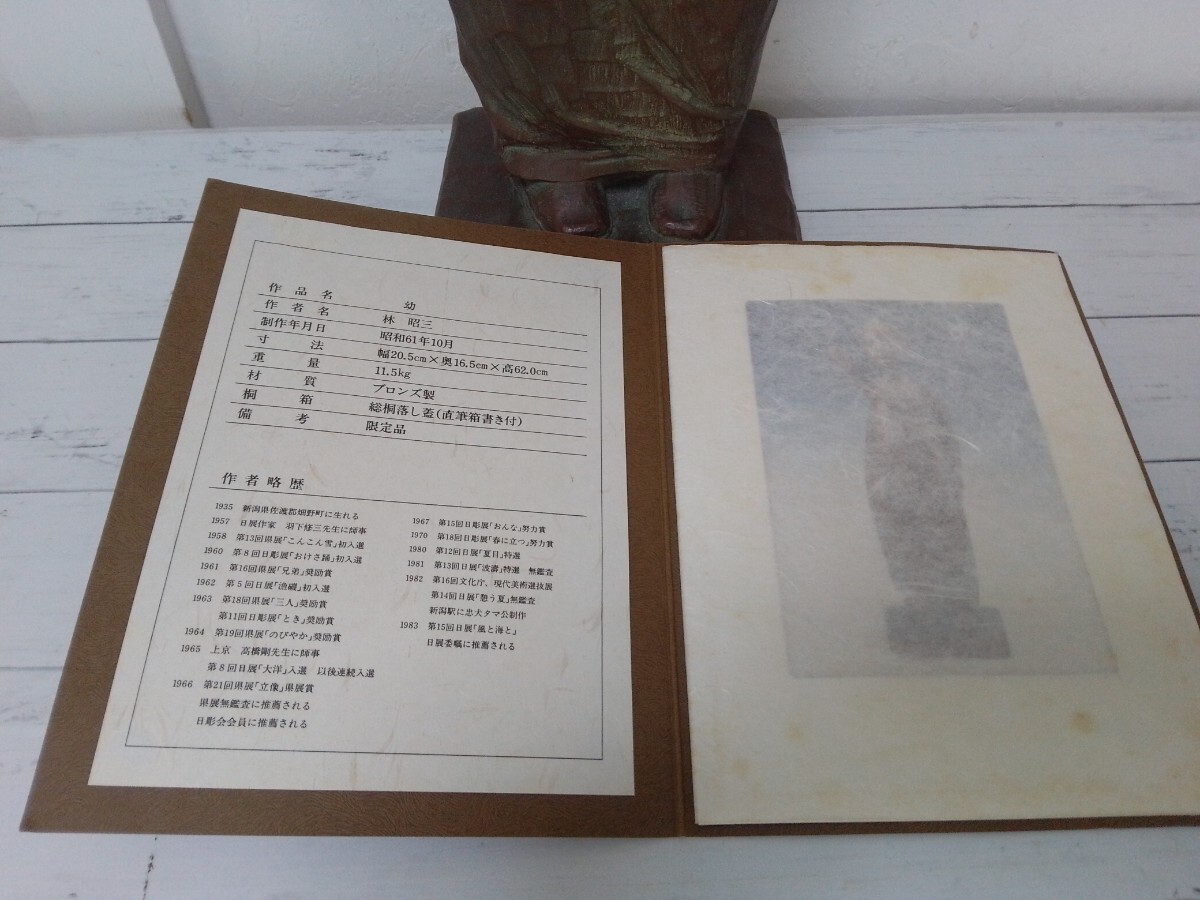 作品名 幼
作者名 林 昭三
制作年月日 昭和61年10月
寸法 幅20.5cm×奥16.5cm×高62.0cm
重量 11.5kg
材質 ブロンズ製
桐箱 総桐落し蓋(直筆箱書き付)
備考 限定品
作者略歴
1935 新潟県佐渡郡畑野町に生れる
1957 日展作家 羽下修三先生に師事
1958 第13回県展「こんこん雪」初入選
1960 第8回日彫展「おけさ踊」初入選
1961 第16回県展「兄弟」奨励賞
1962 第5回日展「漁磯」初入選
1963 第18回県展「三人」奨励賞
第11回日彫展「とき」奨励賞
1964 第19回県展「のびやか」奨励賞
1965 上京 高橋剛先生に師事
第8回日展「大洋」入選 以後連続入選
1966 第21回県展「立像」県展賞
県展無鑑査に推薦される
日彫会会員に推薦される
1967 第15回日彫展「おんな」努力賞
1970 第18回日彫展「春に立つ」努力賞
1980 第12回日展「夏日」特選
1981 第13回日展「波濤」特選 無鑑査
1982 第16回文化庁、現代美術選抜展
第14回日展「憩う夏」無鑑査
新潟駅に忠犬タマ公制作
1983 第15回日展「風と海と」
日展委嘱に推薦される